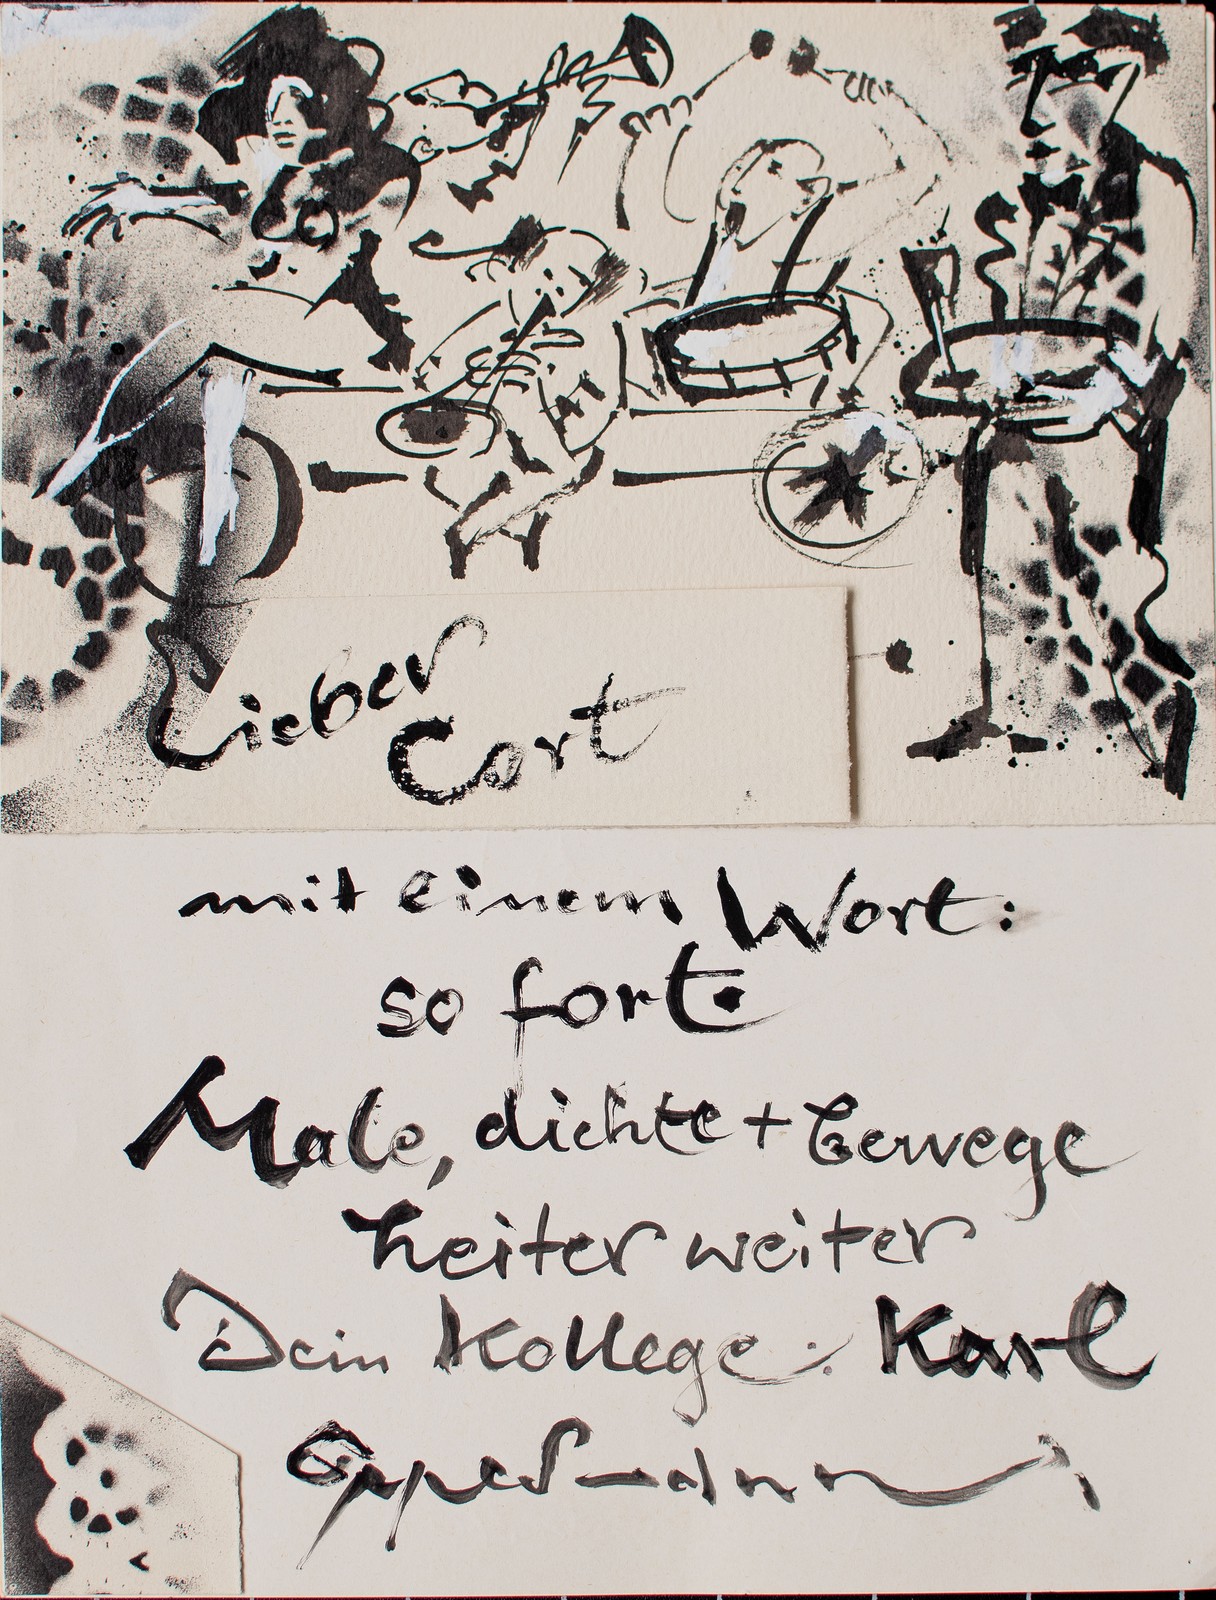 Lieber
Cort
mit einem Wort:
so fort.
Male, dichte + bewege
heiter weiter
Dein Kollege: Karl
Oppermann